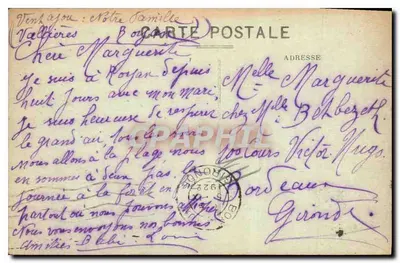 (Ventajou : Notre famille
Vallières
CARTE POSTALE
ADRESSE
Chère Marguerite
je suis à Royan depuis
huit jours avec mon mari
je suis heureuse de respirer
le grand air
nous allons à la plage nous
en sommes à deux pas, la
journée à la forêt en
partout où nous
Nous vous envoyons nos bonnes
amitiés
Melle Marguerite
chez Mlle Betbezeth
cours Victor Hugo
Bordeaux
Gironde
1922